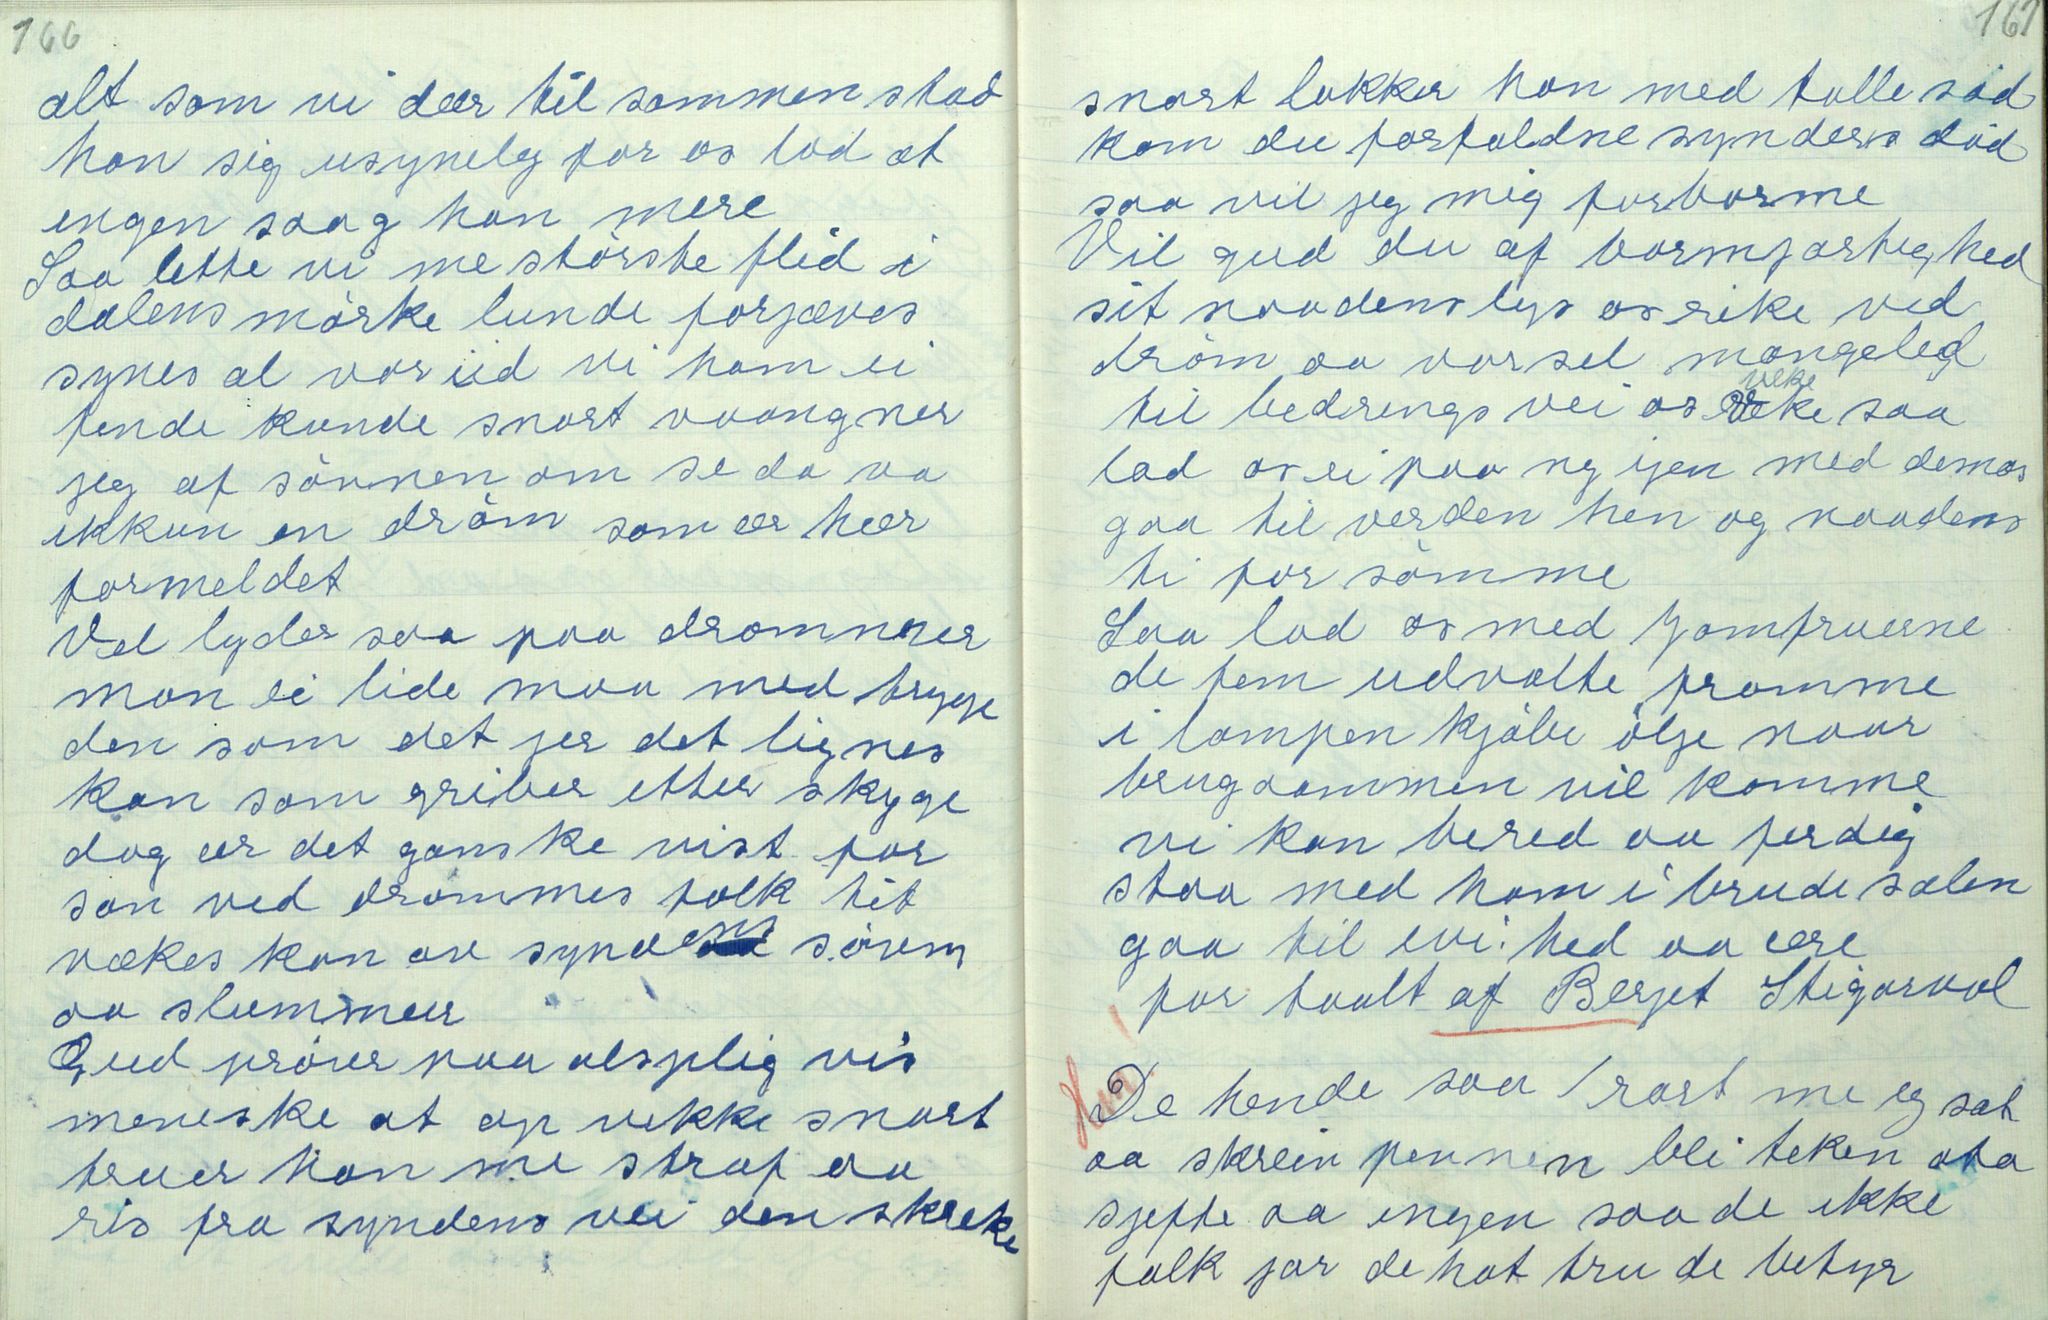 166
alt som vi dær til sammen stod
han sig usynelg for os lod at
engen saag han mere
Saa lette vi me störste flid i
dalens mörke lunde forjæves
synes al vor iid vi ham ei
finde kunde snart vaagner
jeg af sövnen om se da va
ikkun en dröm som ær hær
formeldet
Vel lyder saa paa drommer
man ei lide maa med trygge
den som det jer det lignes
kan som griber etter skyge
dog ær det ganske vist for
san ved drømmes folk tit
vækes kan av syndens sövem
aa slummeer
Gud pröver paa alsplig vis
meneske at op vekke snart
truer han me straf aa
ris fra syndens vei den skreke
167
snart lokker han med talle söd
kom du forfaldne synders död
saa vil jeg mig forbarme
Vil gud du af barmjarteghed
sit naadens lys os rike ved
dröm aa varsel mangeled
til bedrings vei os veke saa
veke
lad os ei paa ny ijen med demas
gaa til verden hen og naadens
ti for sömme
Saa lad os med Jomfruerne
de fem udvalte fromme
i lampen kjöbe ölje naar
brugdommen vil komme
vi kan bered aa ferdig
staa med ham i brude salen
gaa til evi. hed aa ære
for taalt af Berjet Stigarvol
De hende saa rart me eg sat
aa skrein pennen blei teken ata
sjefte aa engen saa de ikke
folk jar de hat tru de betyr